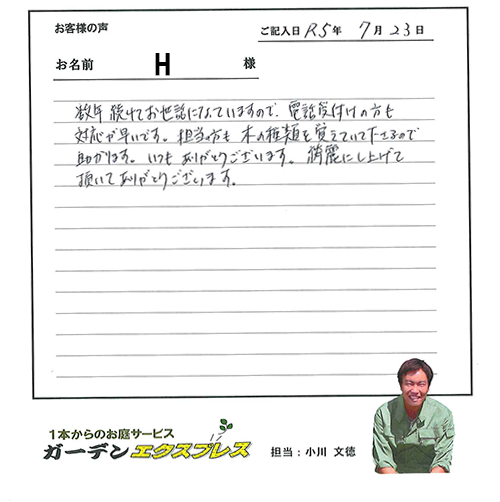 お客様の声
ご記入日 R5年 7月23日
お名前 H 様
数年続けてお世話になっていますので、電話受付けの方も
対応が早いです。担当の方も木の種類を覚えていて下さるので
助かります。いつもありがとうございます。綺麗に仕上げて
頂いてありがとうございます。
1本からのお庭サービス
ガーデンエクスプレス
担当：小川 文徳